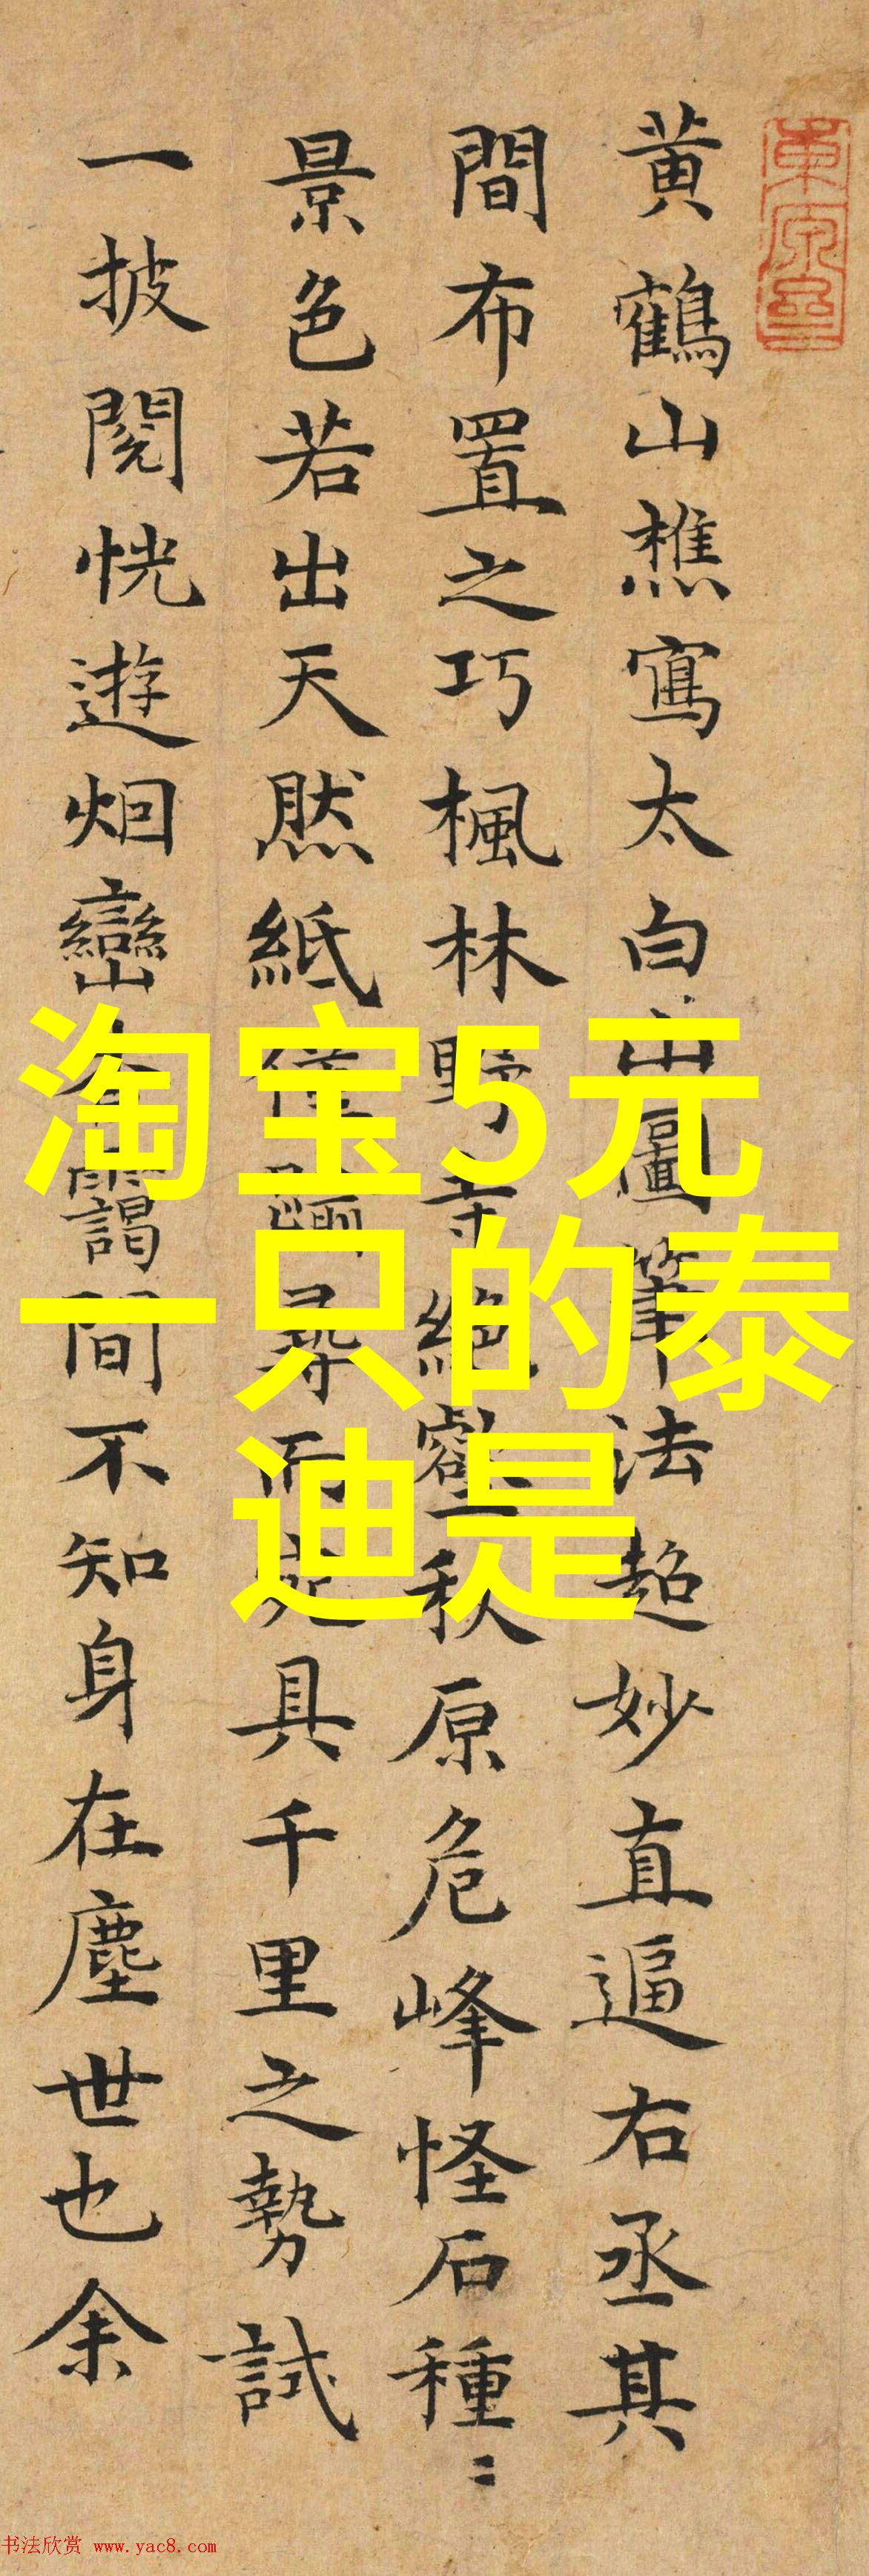 黄鶴山樵寫太白山圖筆法超妙直逼右丞其
間布置之巧楓林野寺絕壑秋原危峰怪石種〻
景色若出天然紙僅尋而具千里之勢試
一披閱恍遊烟巒靄間不知身在塵世也余
淘宝5元
一只的泰
迪是
书法欣赏 www.yac8.com